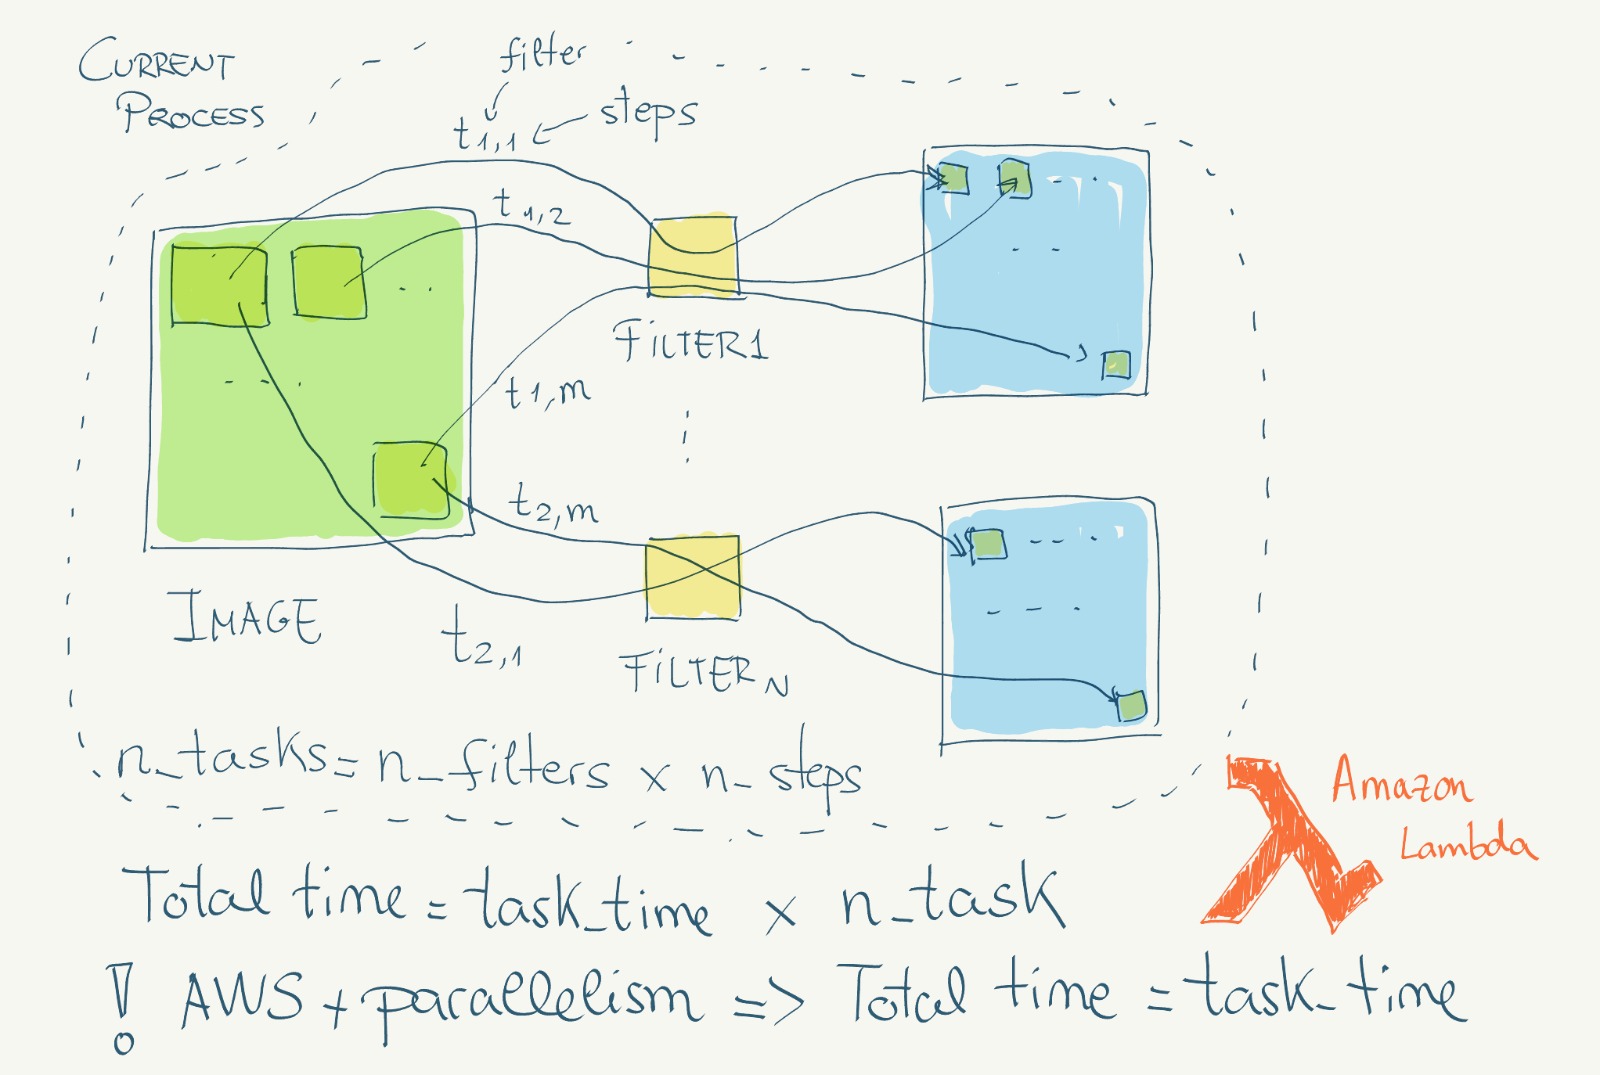 CURRENT
PROCESS
filter
steps
t1,1
t1,2
FILTER1
t1,m
t2,m
IMAGE
t2,1
FILTERN
n_tasks = n_filters x n_steps
Amazon
Lambda
Total time = task_time x n_task
! AWS + parallelism => Total time = task_time